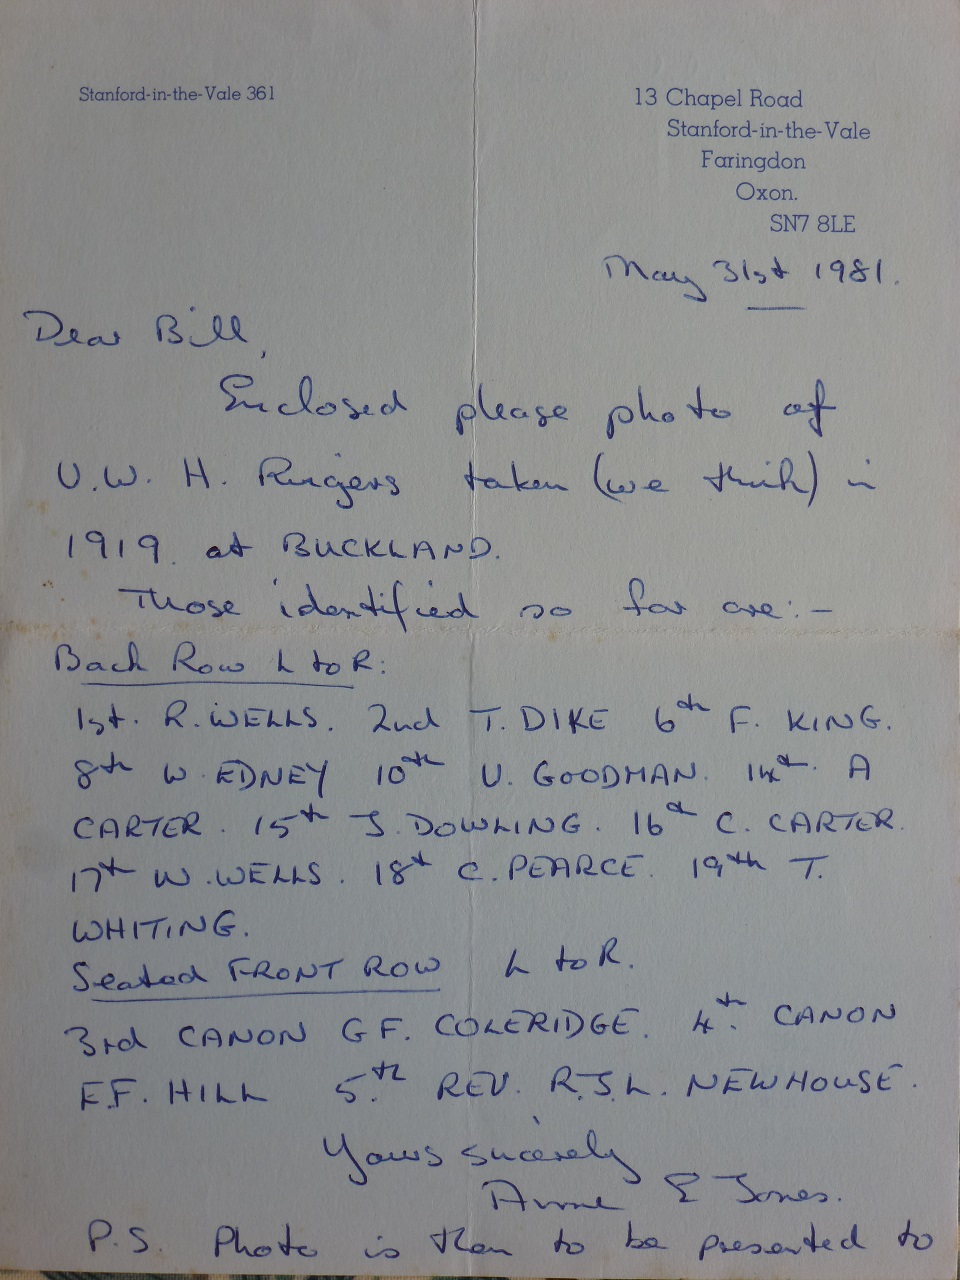 Stanford-in-the-Vale 361
13 Chapel Road
Stanford-in-the-Vale
Faringdon
Oxon.
SN7 8LE
May 31st 1981.
Dear Bill,
Enclosed please photo of
V.W.H. Ringers taken (we think) in
1919 at BUCKLAND.
Those identified so far are:-
Back Row L to R:
1st. R. WELLS. 2nd T. DIKE 6th F. KING.
8th W. EDNEY 10th V. GOODMAN. 14th A
CARTER. 15th J. DOWLING. 16th C. CARTER.
17th W. WELLS. 18th C. PEARCE. 19th T.
WHITING.
Seated FRONT ROW L to R.
3rd CANON G F. COLERIDGE. 4th. CANON
F.F. HILL 5.th REV. R.J.L. NEWHOUSE.
Yours sincerely
Anne E Jones.
P.S. Photo is then to be presented to